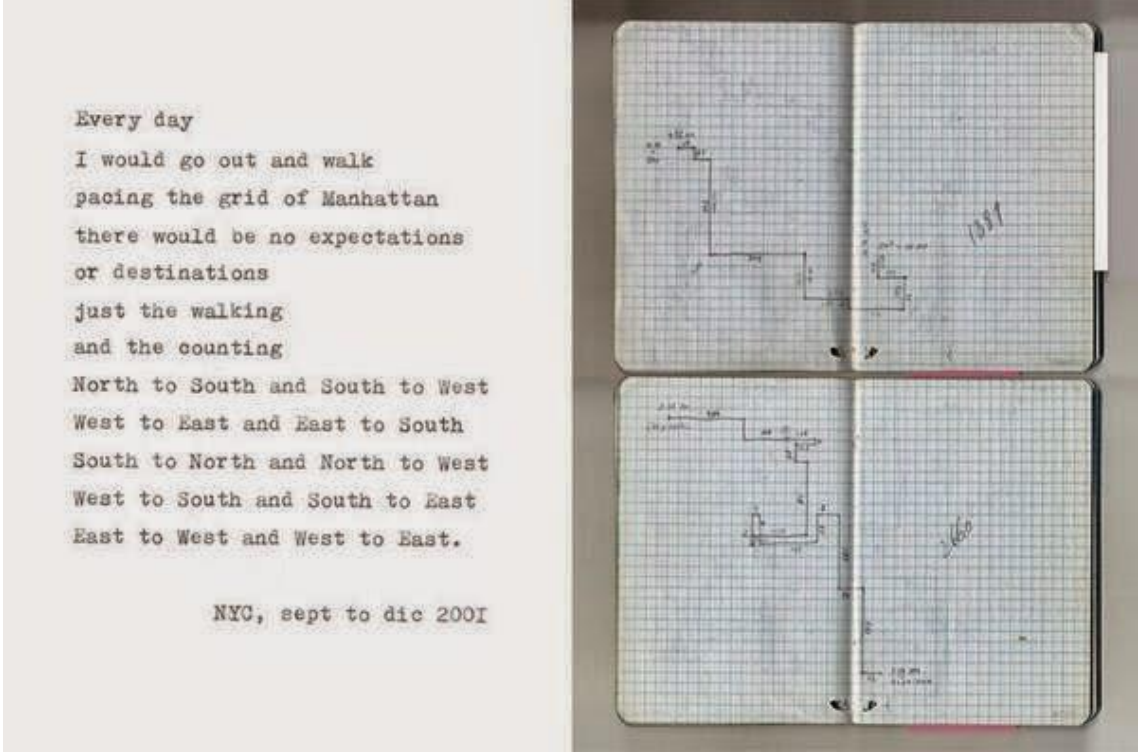 Every day
I would go out and walk
pacing the grid of Manhattan
there would be no expectations
or destinations
just the walking
and the counting
North to South and South to West
West to East and East to South
South to North and North to West
West to South and South to East
East to West and West to East.
NYC, sept to dic 2001
1389
2660